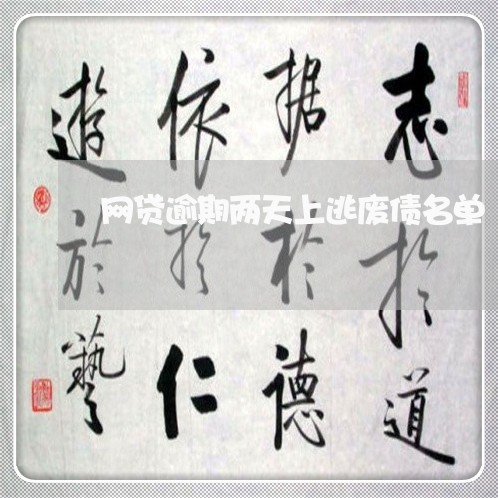 志扵道
据扵德
依扵仁
遊於藝
网贷逾期两天上逃废债名单